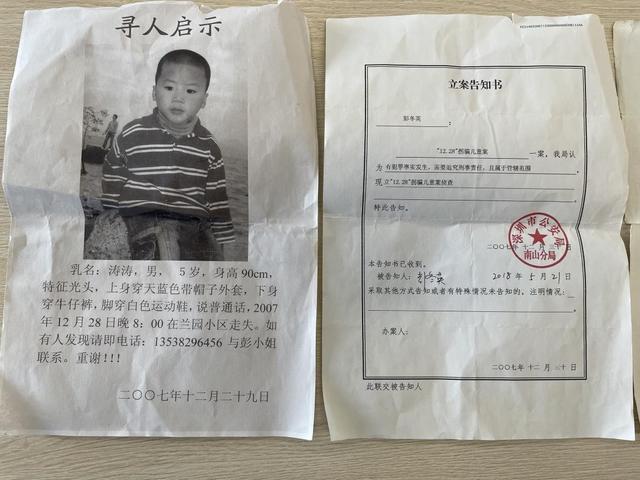 寻人启示
乳名：涛涛，男， 5岁，身高90cm，
特征光头，上身穿天蓝色带帽子外套，下身
穿牛仔裤，脚穿白色运动鞋，说普通话，2007
年12月28日晚8：00在兰园小区走失。如
有人发现请即电话：13538296456 与彭小姐
联系。重谢!!!
二〇〇七年十二月二十九日
立案告知书
彭冬英：
“12.28”拐骗儿童案 一案，我局认
为 有犯罪事实发生，需要追究刑事责任，且属于管辖范围
现 立“12.28”拐骗儿童案侦查
特此告知。
深圳市公安局
南山分局
二〇〇七年十二月三十日
本告知书已收到。
被告知人：彭冬英 2018年5月21日
采取其他方式告知或者有特殊情况未告知的，注明情况：
办案人：
二〇〇七年 十二 月 三十 日
此联交被告知人